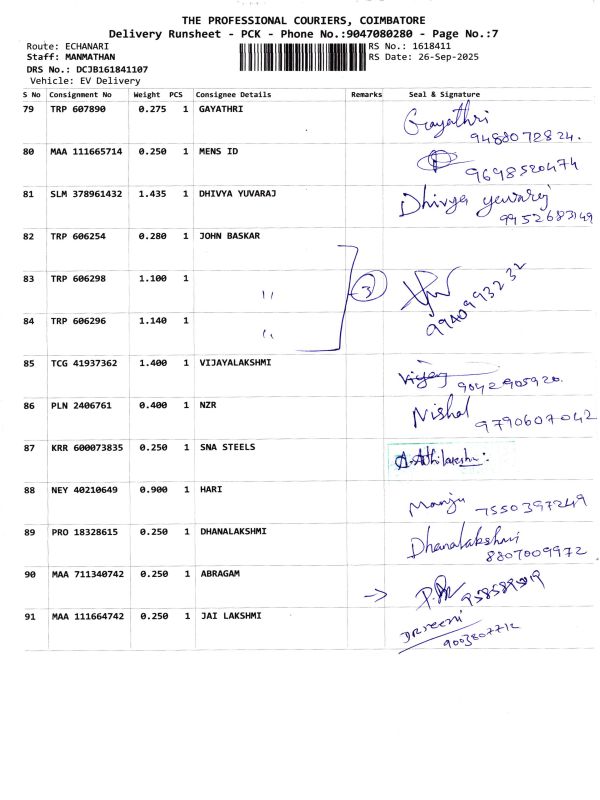 THE PROFESSIONAL COURIERS, COIMBATORE
Delivery Runsheet - PCK - Phone No.:9047080280 - Page No.:7
Route: ECHANARI RS No.: 1618411
Staff: MANMATHAN RS Date: 26-Sep-2025
DRS No.: DCJB161841107
Vehicle: EV Delivery
S No Consignment No Weight PCS Consignee Details Remarks Seal & Signature
79 TRP 607890 0.275 1 GAYATHRI Gayathri
9488072824.
80 MAA 111665714 0.250 1 MENS ID
9698520474
81 SLM 378961432 1.435 1 DHIVYA YUVARAJ Dhivya yuvaraj
9952683149
82 TRP 606254 0.280 1 JOHN BASKAR
83 TRP 606298 1.100 1 " 3
9940993232
84 TRP 606296 1.140 1 "
85 TCG 41937362 1.400 1 VIJAYALAKSHMI Vijay 9042905920.
86 PLN 2406761 0.400 1 NZR Nishal
9790607042
87 KRR 600073835 0.250 1 SNA STEELS
88 NEY 40210649 0.900 1 HARI Manju 7550397249
89 PRO 18328615 0.250 1 DHANALAKSHMI Dhanalakshmi
8807009972
90 MAA 711340742 0.250 1 ABRAGAM →
91 MAA 111664742 0.250 1 JAI LAKSHMI
9003807712